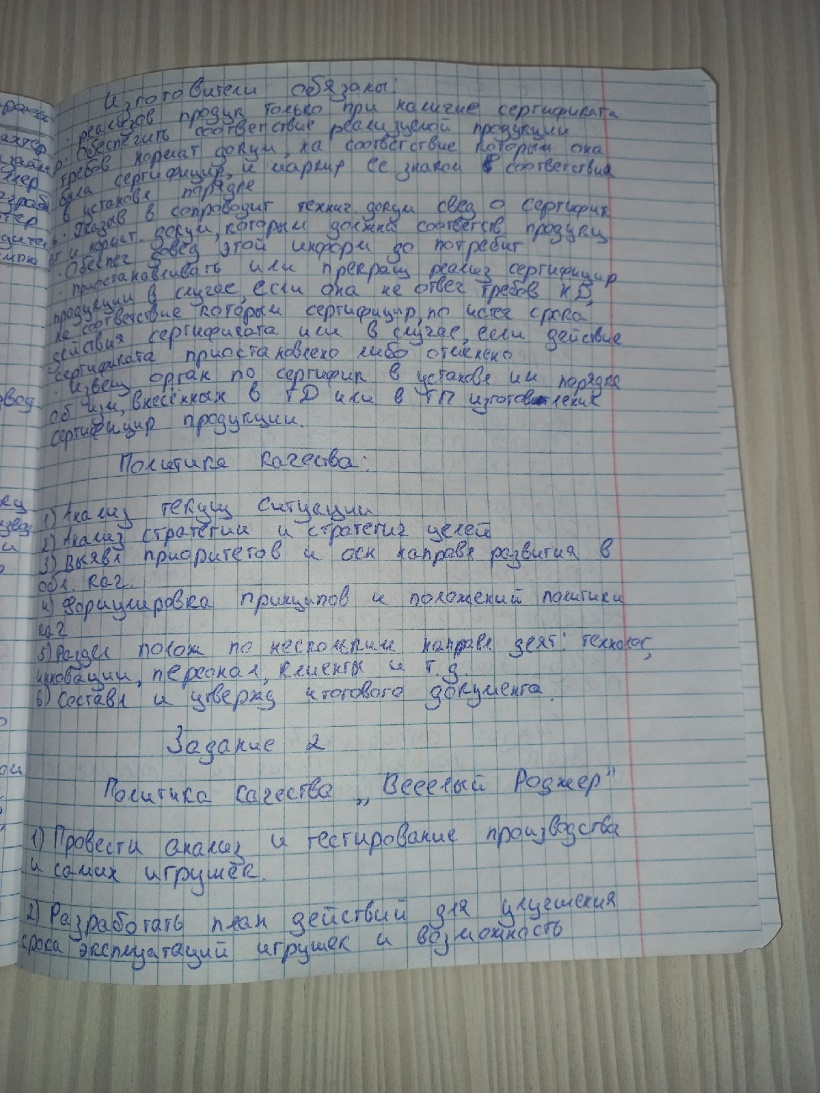 Изготовители обязаны:
· реализов продук только при наличие сертификата
· Обеспечить соответствие реализуемой продукции
требов нормат докум, на соответствие которым она
была сертифицир, и маркир ее знаком соответствия
в установл порядке
· Указыв в сопроводит технич докум свед о сертифик
и нормат. докум, которым должна соответств продукц
· Обеспеч довед этой информ до потребит
· приостанавливать или прекращ реализ сертифицир
продукции в случае, если она не отвеч требов НД,
на соответствие которым сертифицир, по истеч срока
действия сертификата или в случае, если действие
сертификата приостановлено либо отменено
· Извещ орган по сертифик в установл им порядке
об изм, внесённых в ТД или в ТП изготовления
сертифицир продукции.
Политика качества:
1) Анализ текущ ситуации
2) Анализ стратегии и стратегич целей
3) Выявл приоритетов и осн направл развития в
обл. кач.
4) Формулировка принципов и положений политики
кач
5) Раздел полож по нескольким направл деят: технолог,
инновации, персонал, клиенты и т.д.
6) Составл и утвержд итогового документа.
Задание 2
Политика качества „Веселый Роджер"
1) Провести анализ и тестирование производства
и самих игрушек.
2) Разработать план действий для улучшения
срока эксплуатаций игрушек и возможность